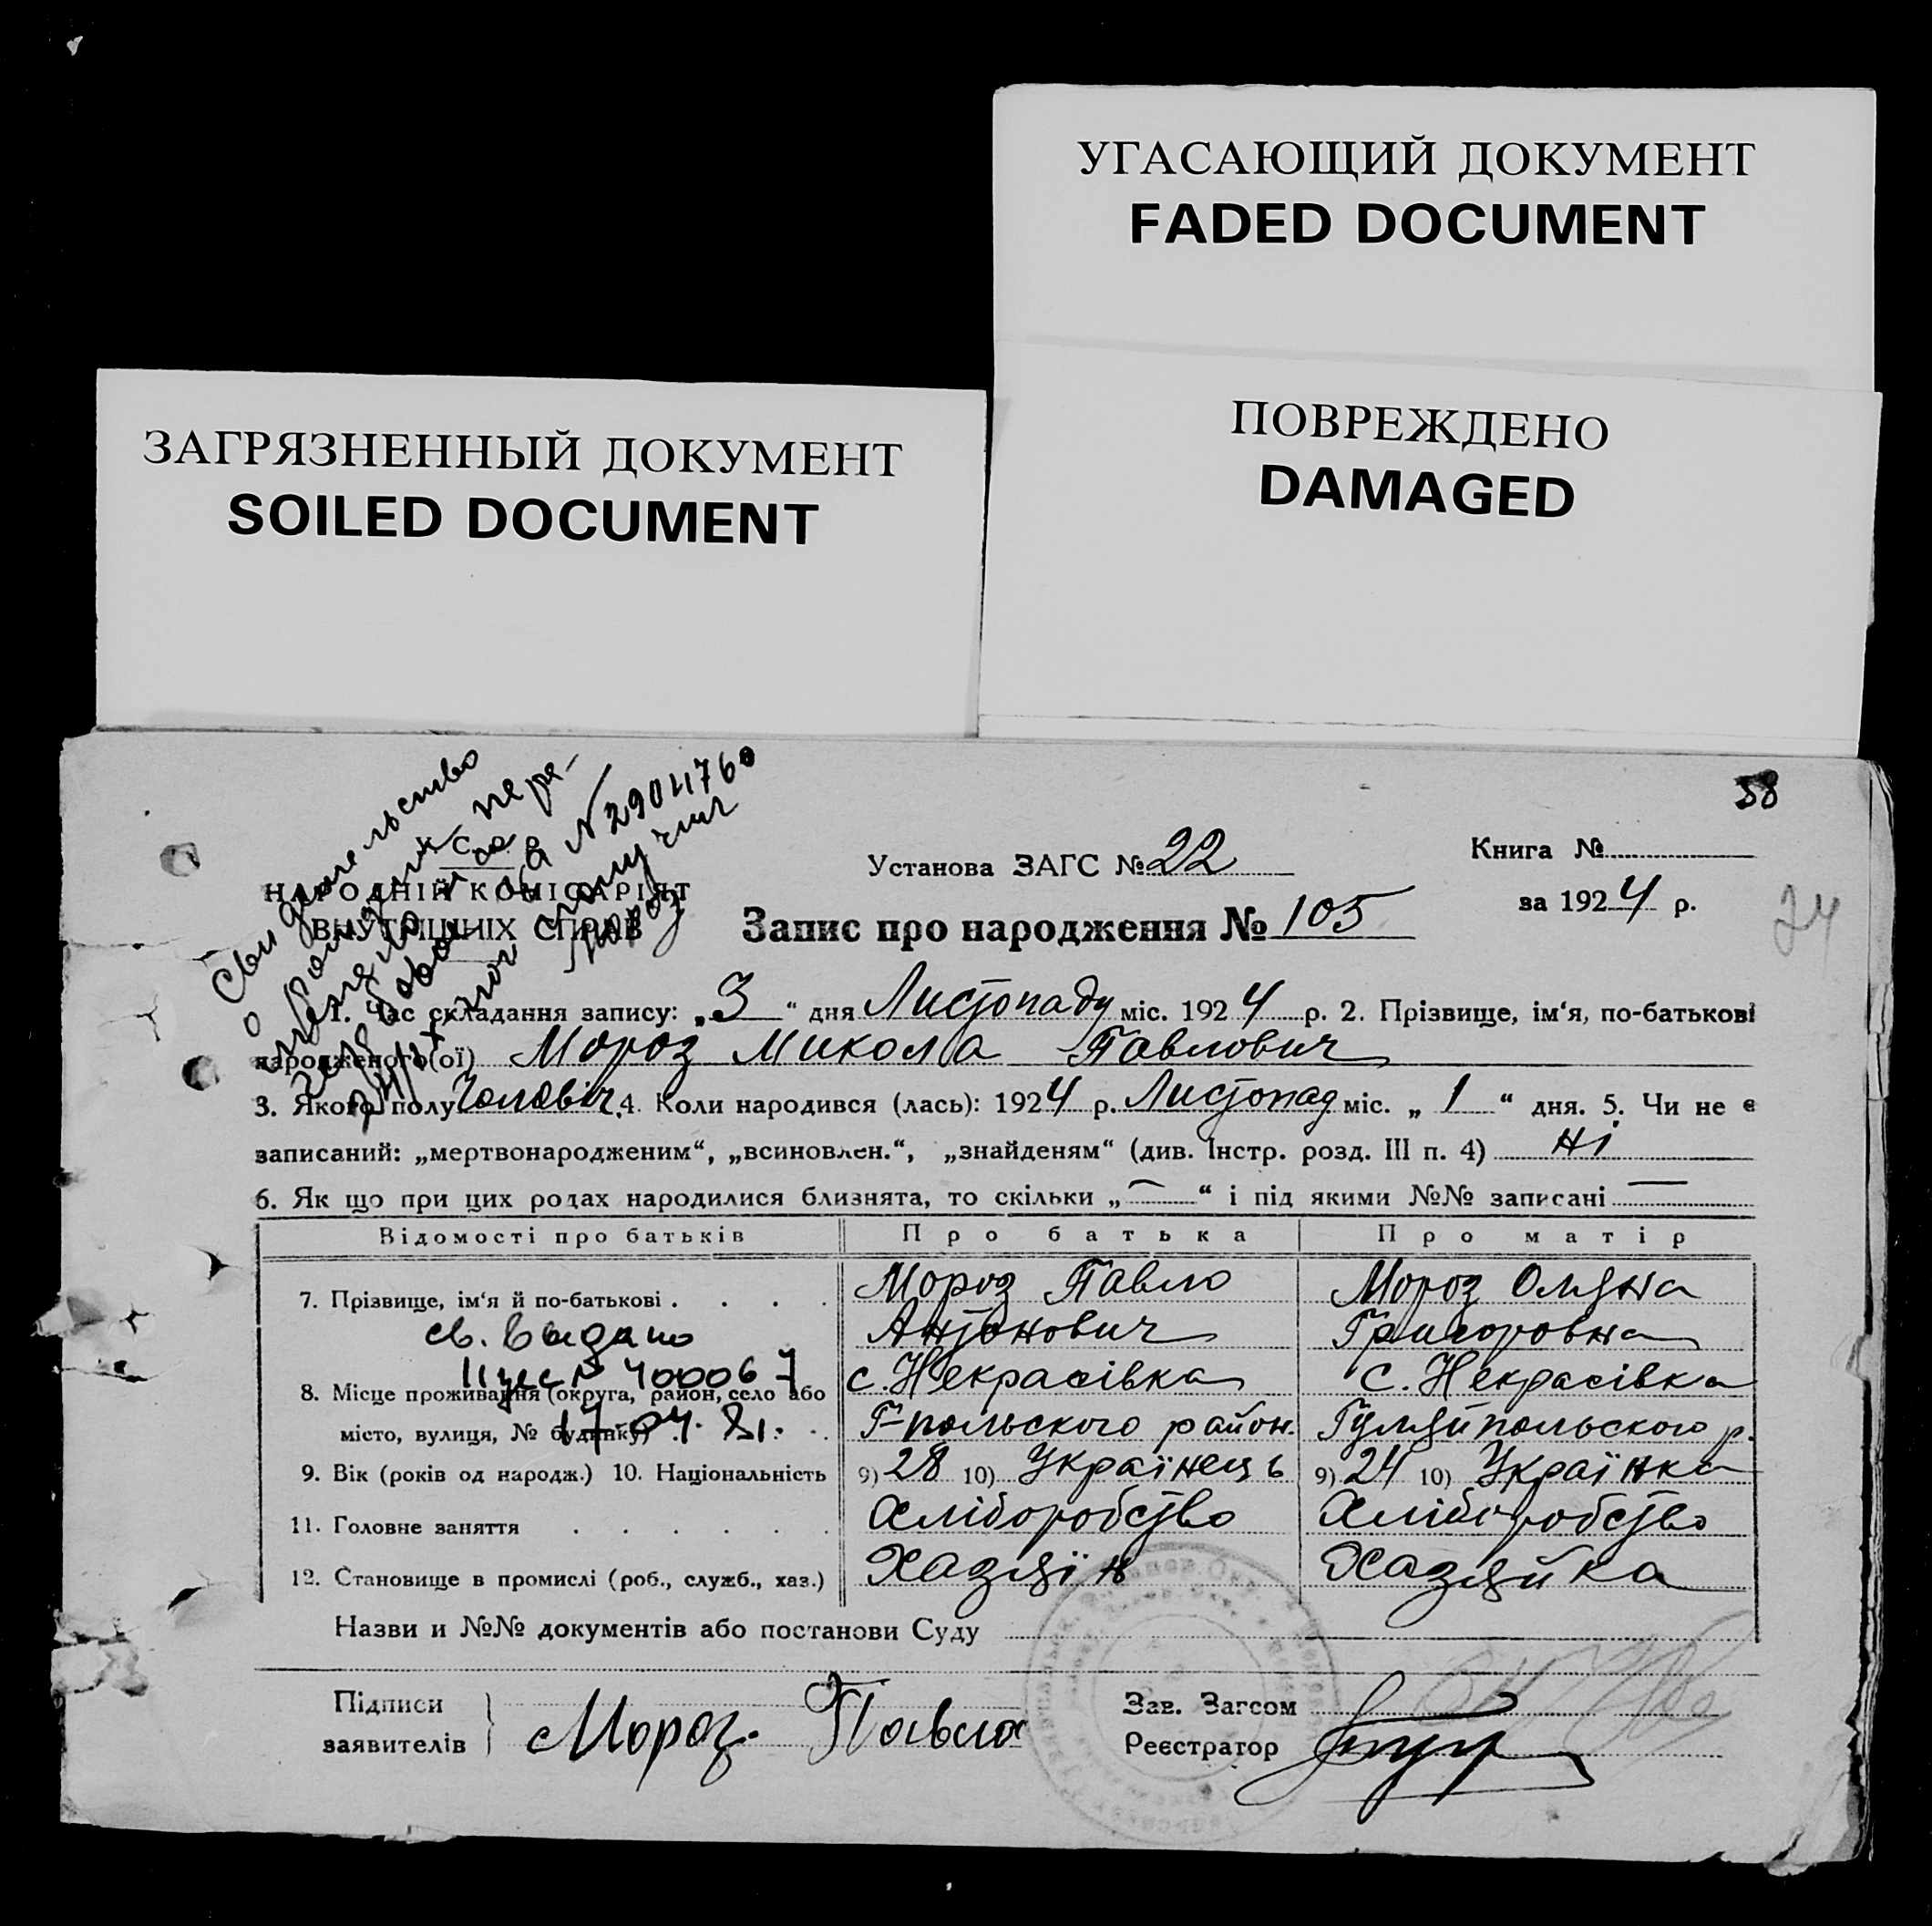 УГАСАЮЩИЙ ДОКУМЕНТ
FADED DOCUMENT
ЗАГРЯЗНЕННЫЙ ДОКУМЕНТ
SOILED DOCUMENT
ПОВРЕЖДЕНО
DAMAGED
58
24
Свидетельство
о
№
Мороз
НАРОДНІЙ КОМІСАРІЯТ
ВНУТРІШНІХ СПРАВ
Установа ЗАГС № 22
Книга №
за 1924 р.
Запис про народження № 105
1. Час складання запису: „3“ дня Листопаду міс. 1924 р. 2. Прізвище, ім‘я, по-батькові
народженого(ої) Мороз Микола Павлович
3. Якого полу Чоловіч. 4. Коли народився (лась): 1924 р. Листопад міс. „1“ дня. 5. Чи не є
записаний: „мертвонародженим“, „всиновлен.“, „знайденям“ (див. Інстр. розд. III п. 4) Ні
6. Як що при цих родах народилися близнята, то скільки „—“ і під якими №№ записані —
Відомості про батьків Про батька Про матір
7. Прізвище, ім‘я й по-батькові . . . . Мороз Павло Мороз Оляна
св. выдано Антонович Григоровна
№ 400067
8. Місце проживання (округа, район, село або с. Некрасівка с. Некрасівка
місто, вулиця, № будинку) Г-польського район. Гуляйпольского р.
17.04.81.
9. Вік (років од народж.) 10. Національність 9) 28 10) Українець 9) 24 10) Українка
11. Головне заняття . . . . . . Хліборобство Хліборобство
12. Становище в промислі (роб., служб., хаз.) Хазяїн Хазяйка
Назви и №№ документів або постанови Суду
Підписи
заявителів Мороз. Павло
Зав. Загсом
Реєстратор